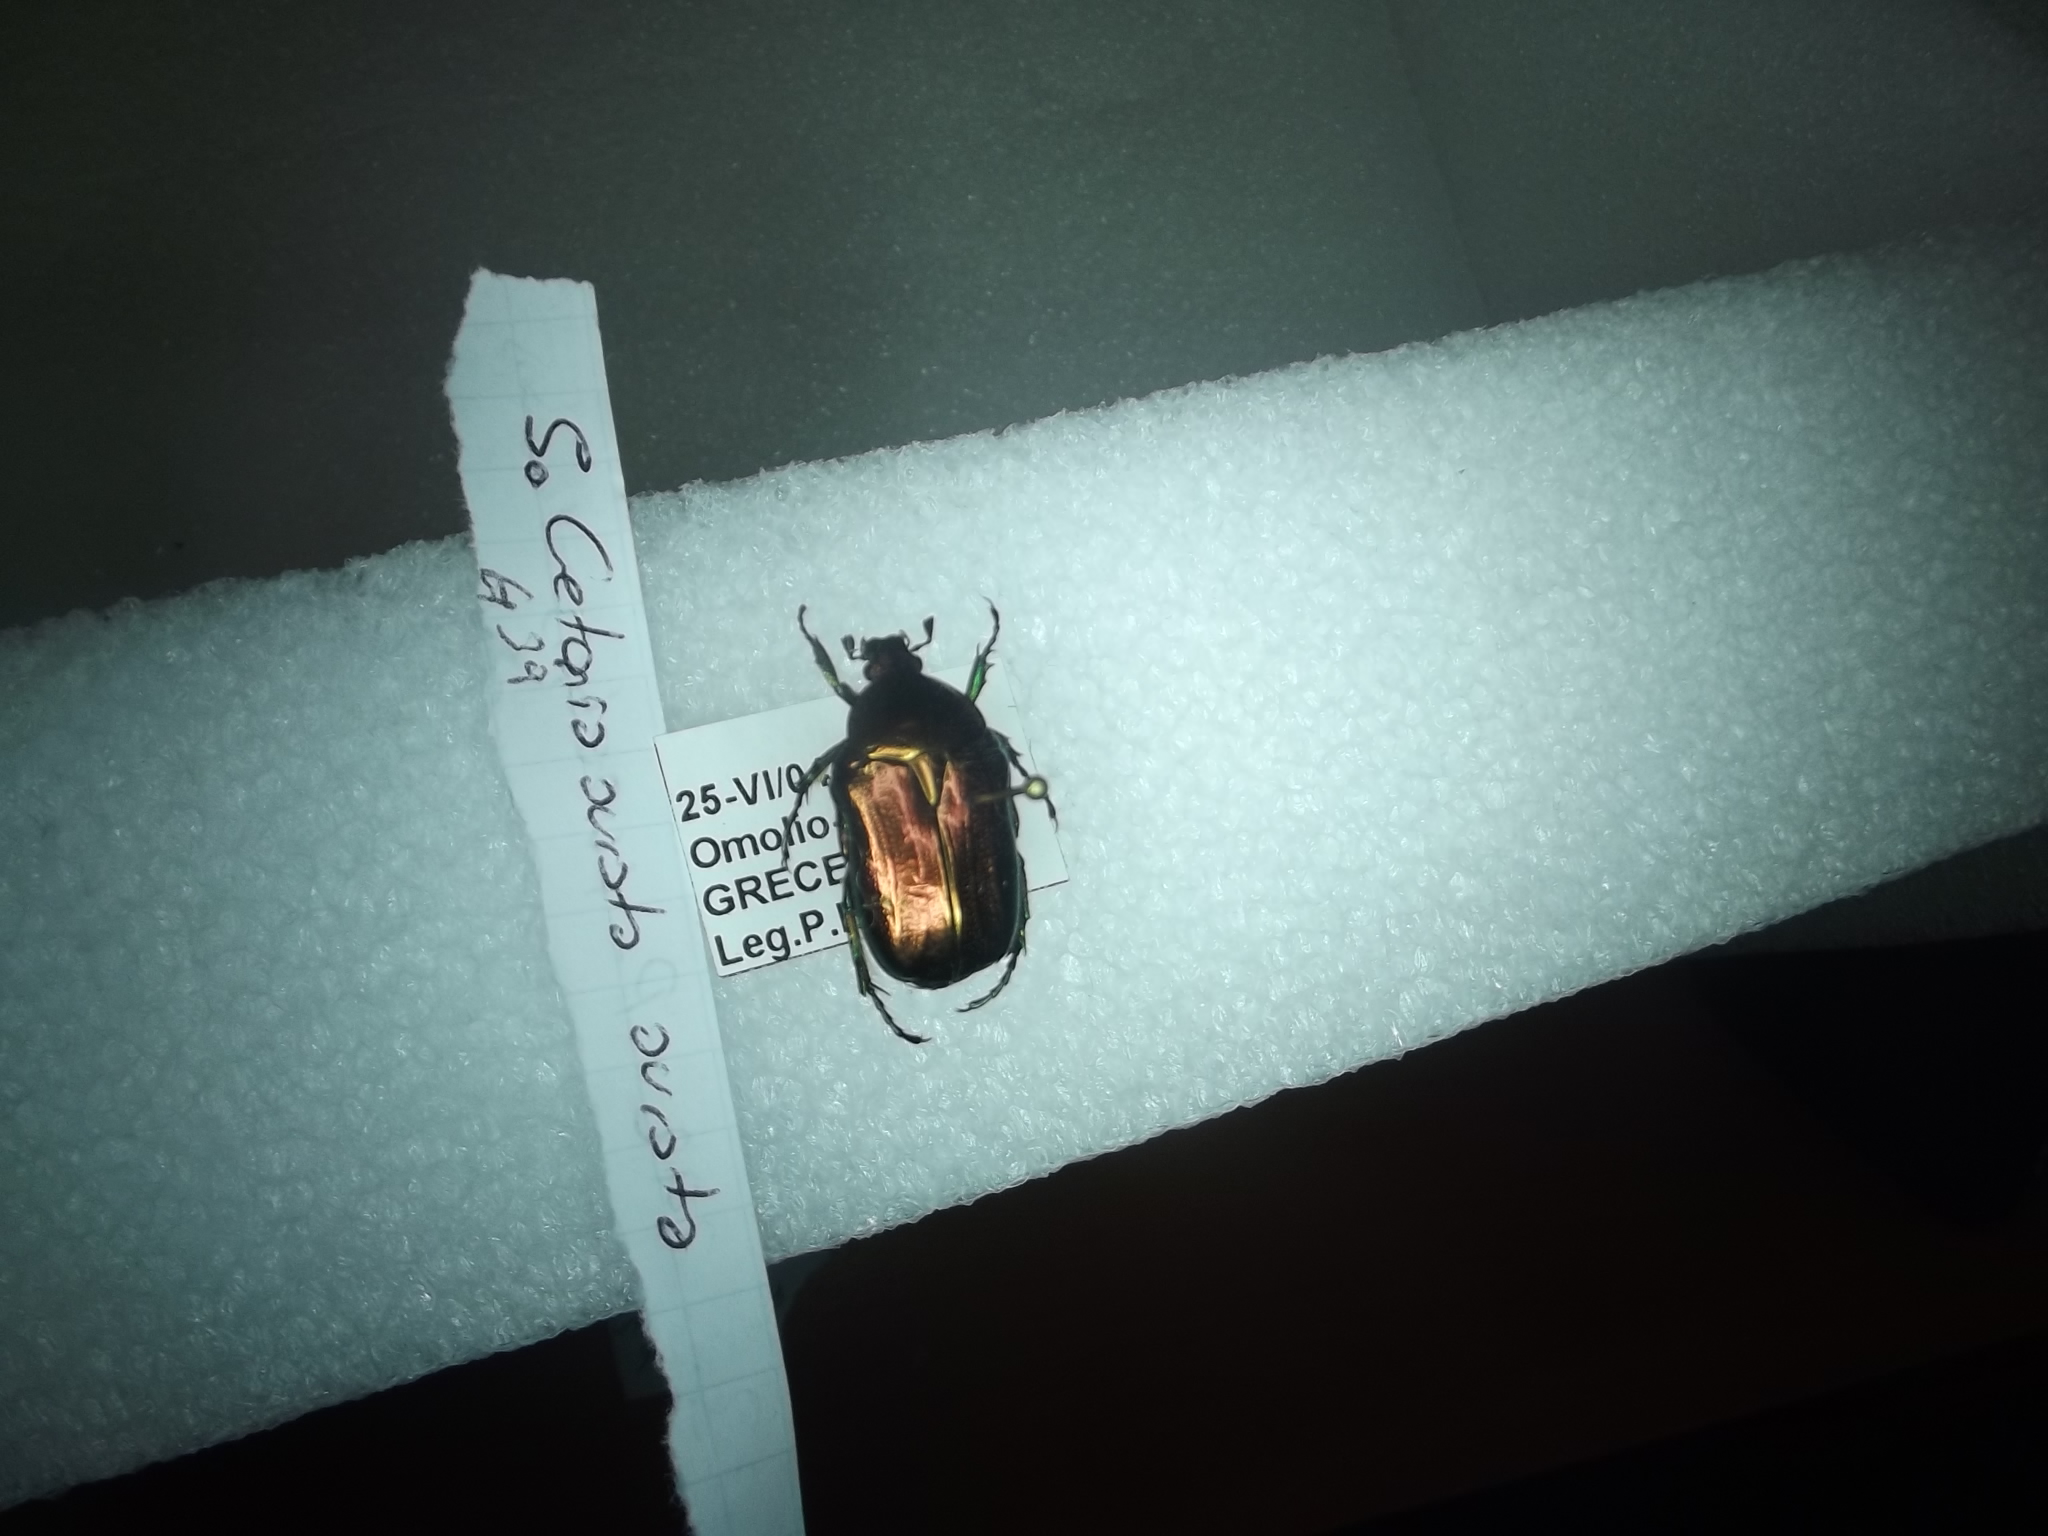 25-VI/0
Omolio
GRECE
Leg.P.
So Cetonia aurata aurata
G39